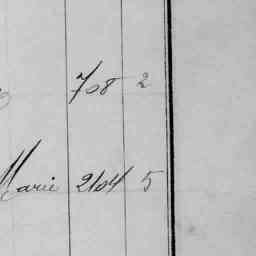 708 2
Marie 2104 5